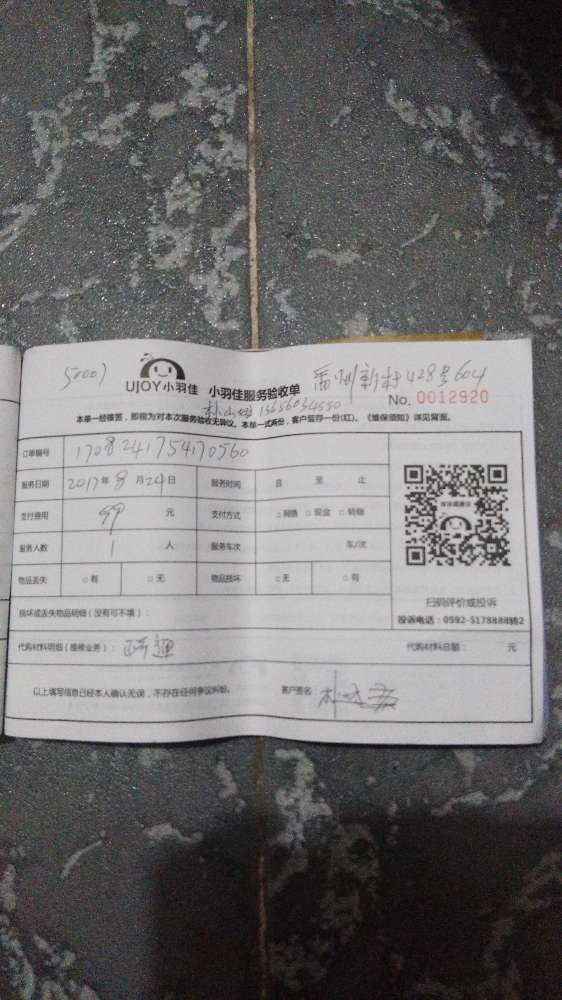 50007
UJOY小羽佳 小羽佳服务验收单 新村428号604
No. 0012920
本单一经签签，即视为对本次服务验收无异议。本单一式两份，客户留存一份(红)。《维保须知》详见背面。
订单编号 1708241754170560
服务日期 2017年8月24日 服务时间 自 至 止
支付费用 99 元 支付方式 □网络 □现金 □转账
服务人数 1 人 服务车次 车/次
物品丢失 □有 □无 物品损坏 □无 □有
损坏或丢失物品明细（没有可不填）：
扫码评价或投诉
投诉电话：0592-5178888转2
代购材料明细（维修业务）：疏通 代购材料总额： 元
以上填写信息已经本人确认无误，不存在任何争议纠纷。 客户签名：